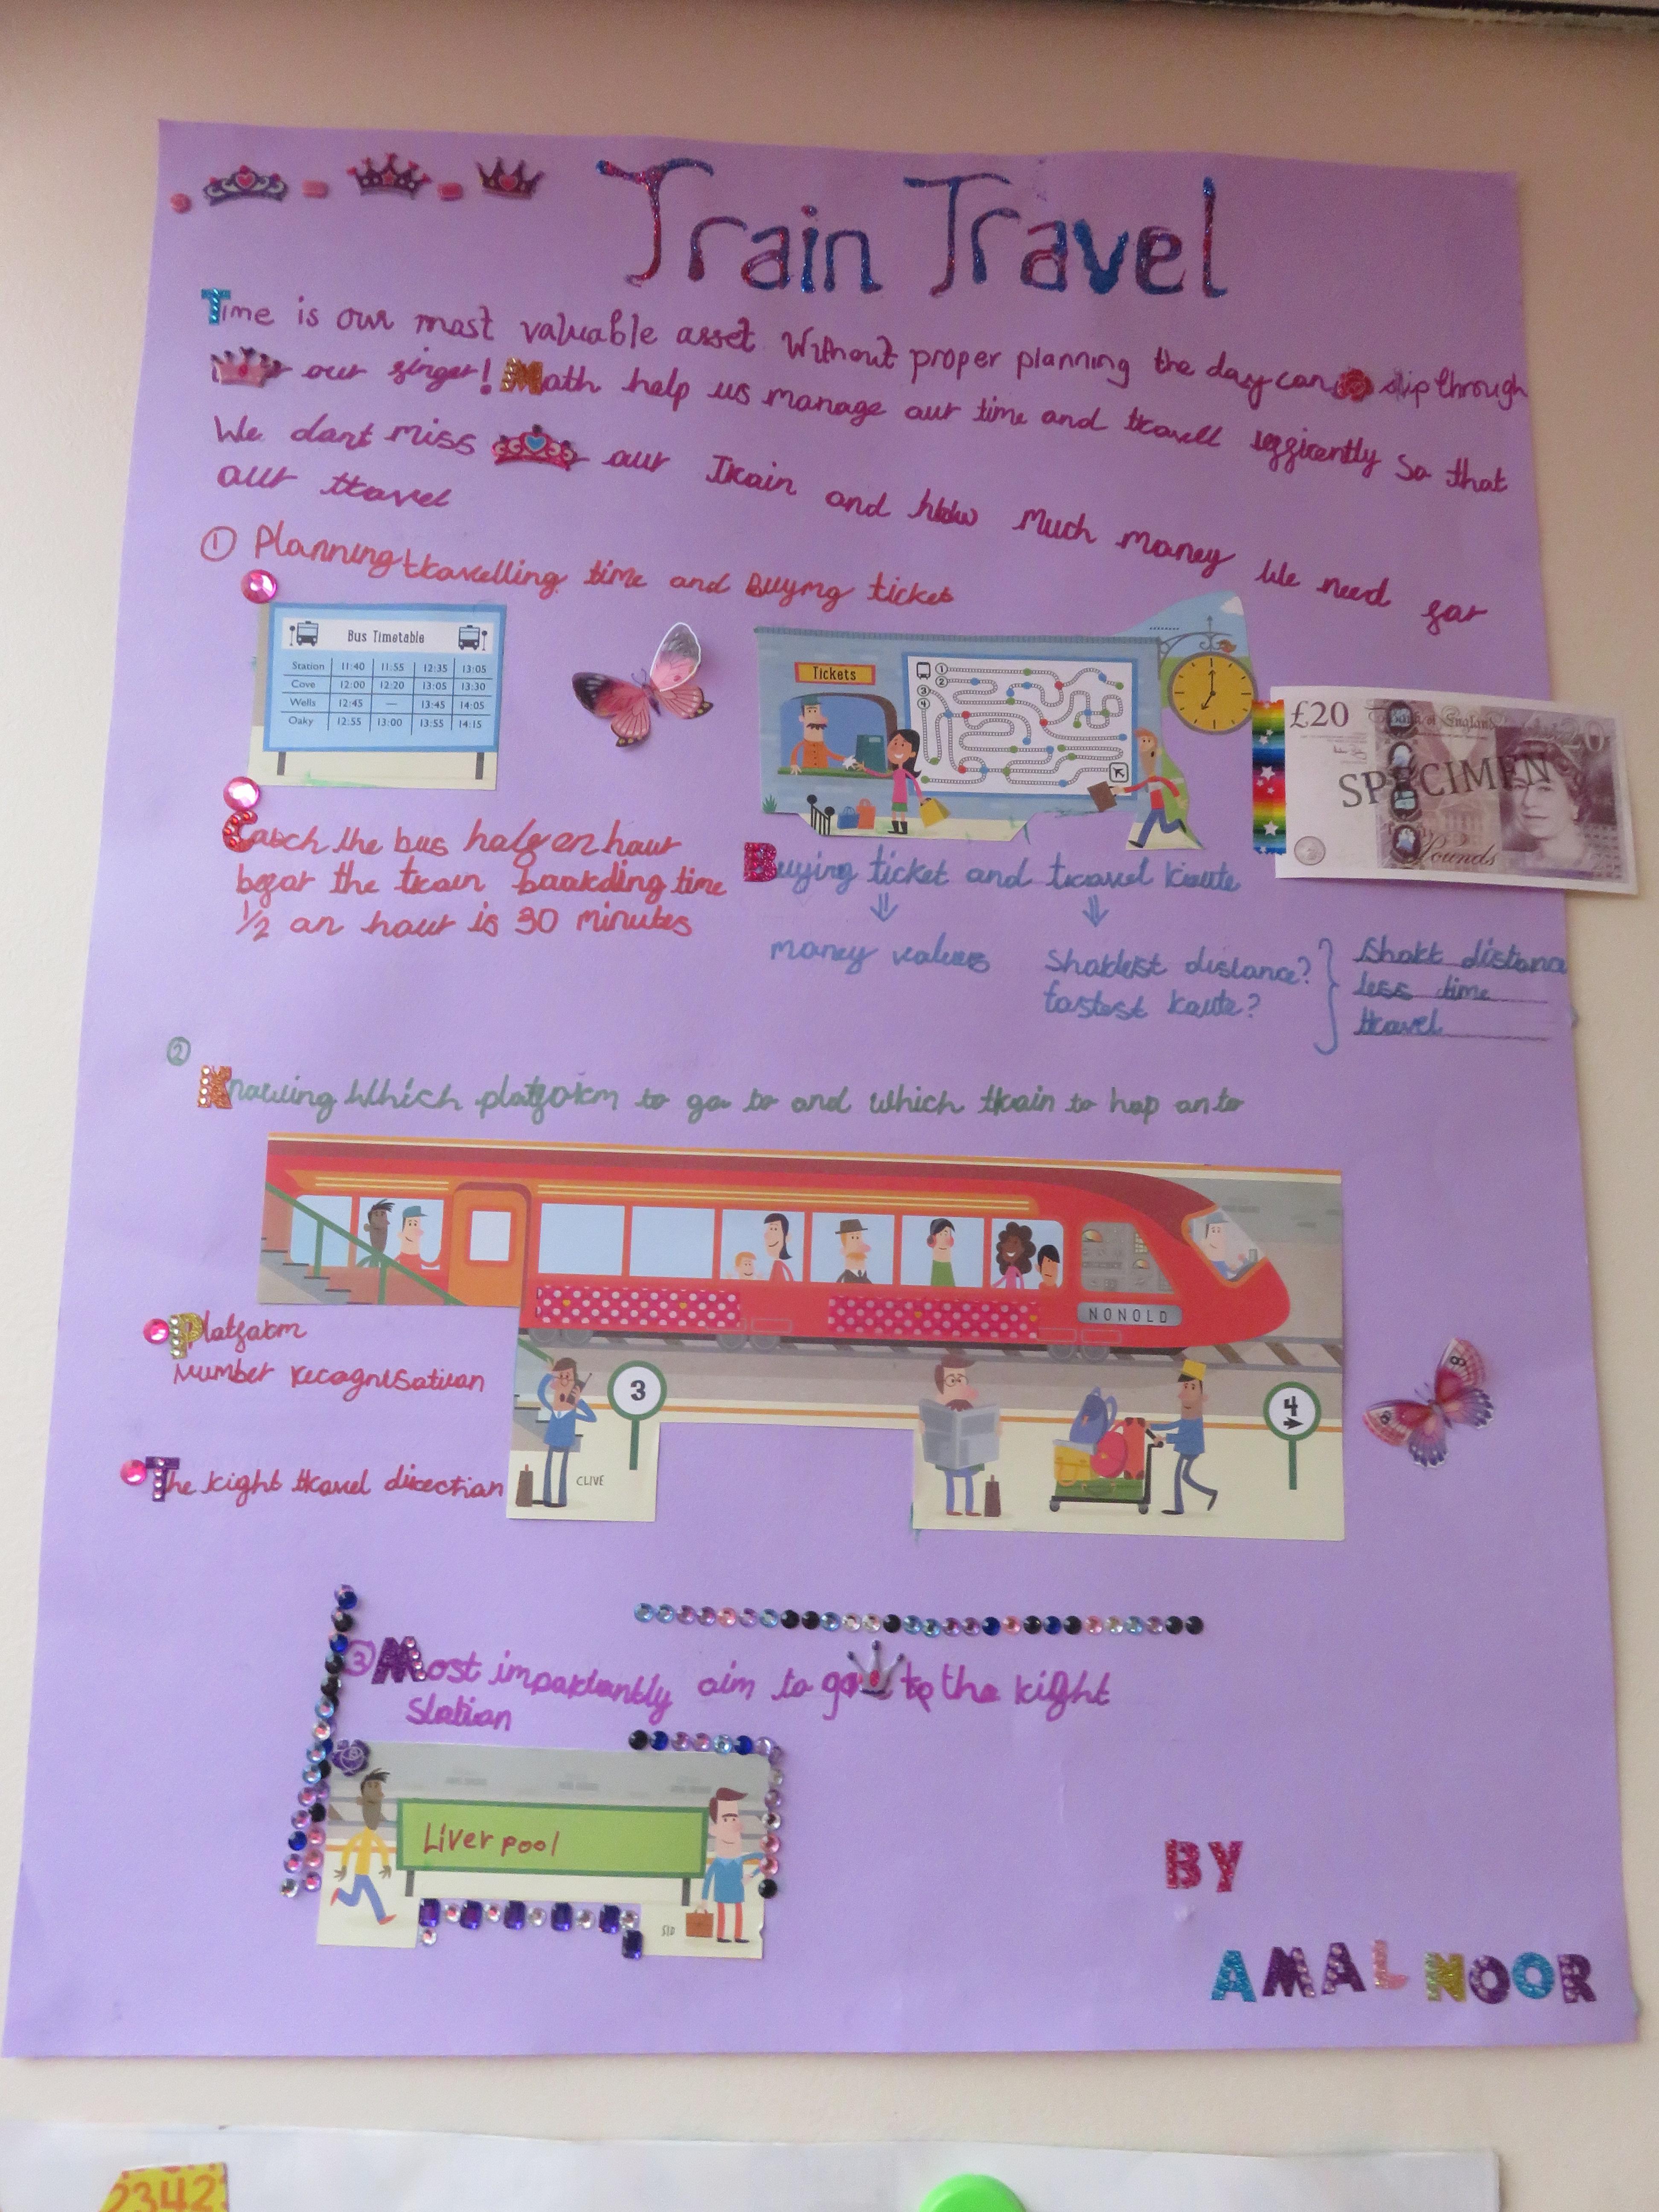 Train Travel
Time is our most valuable asset Without proper planning the day can slip through
our finger! Math help us manage our time and travell efficently so that
We dont miss our Train and how Much money We need for
our travel
① Planning travelling time and Buying ticket
Bus Timetable
Station 11:40 11:55 12:35 13:05
Cove 12:00 12:20 13:05 13:30
Wells 12:45 — 13:45 14:05
Oaky 12:55 13:00 13:55 14:15
Tickets
1
2
3
4
£20 Bank of England 20
SPECIMEN
Pounds
Catch the bus half en hour
befor the train boarding time
1/2 an hour is 30 minutes
Buying ticket and travel route
money values
Shortest distance?
fastest route?
Short distance
less time
travel
②
Knowing Which platform to go to and which train to hop onto
NONOLD
Platform
Number recognisation
3
4
CLIVE
The right travel direction
③ Most importantly aim to go to the right
Station
Liverpool
SID
BY
AMAL NOOR
2342